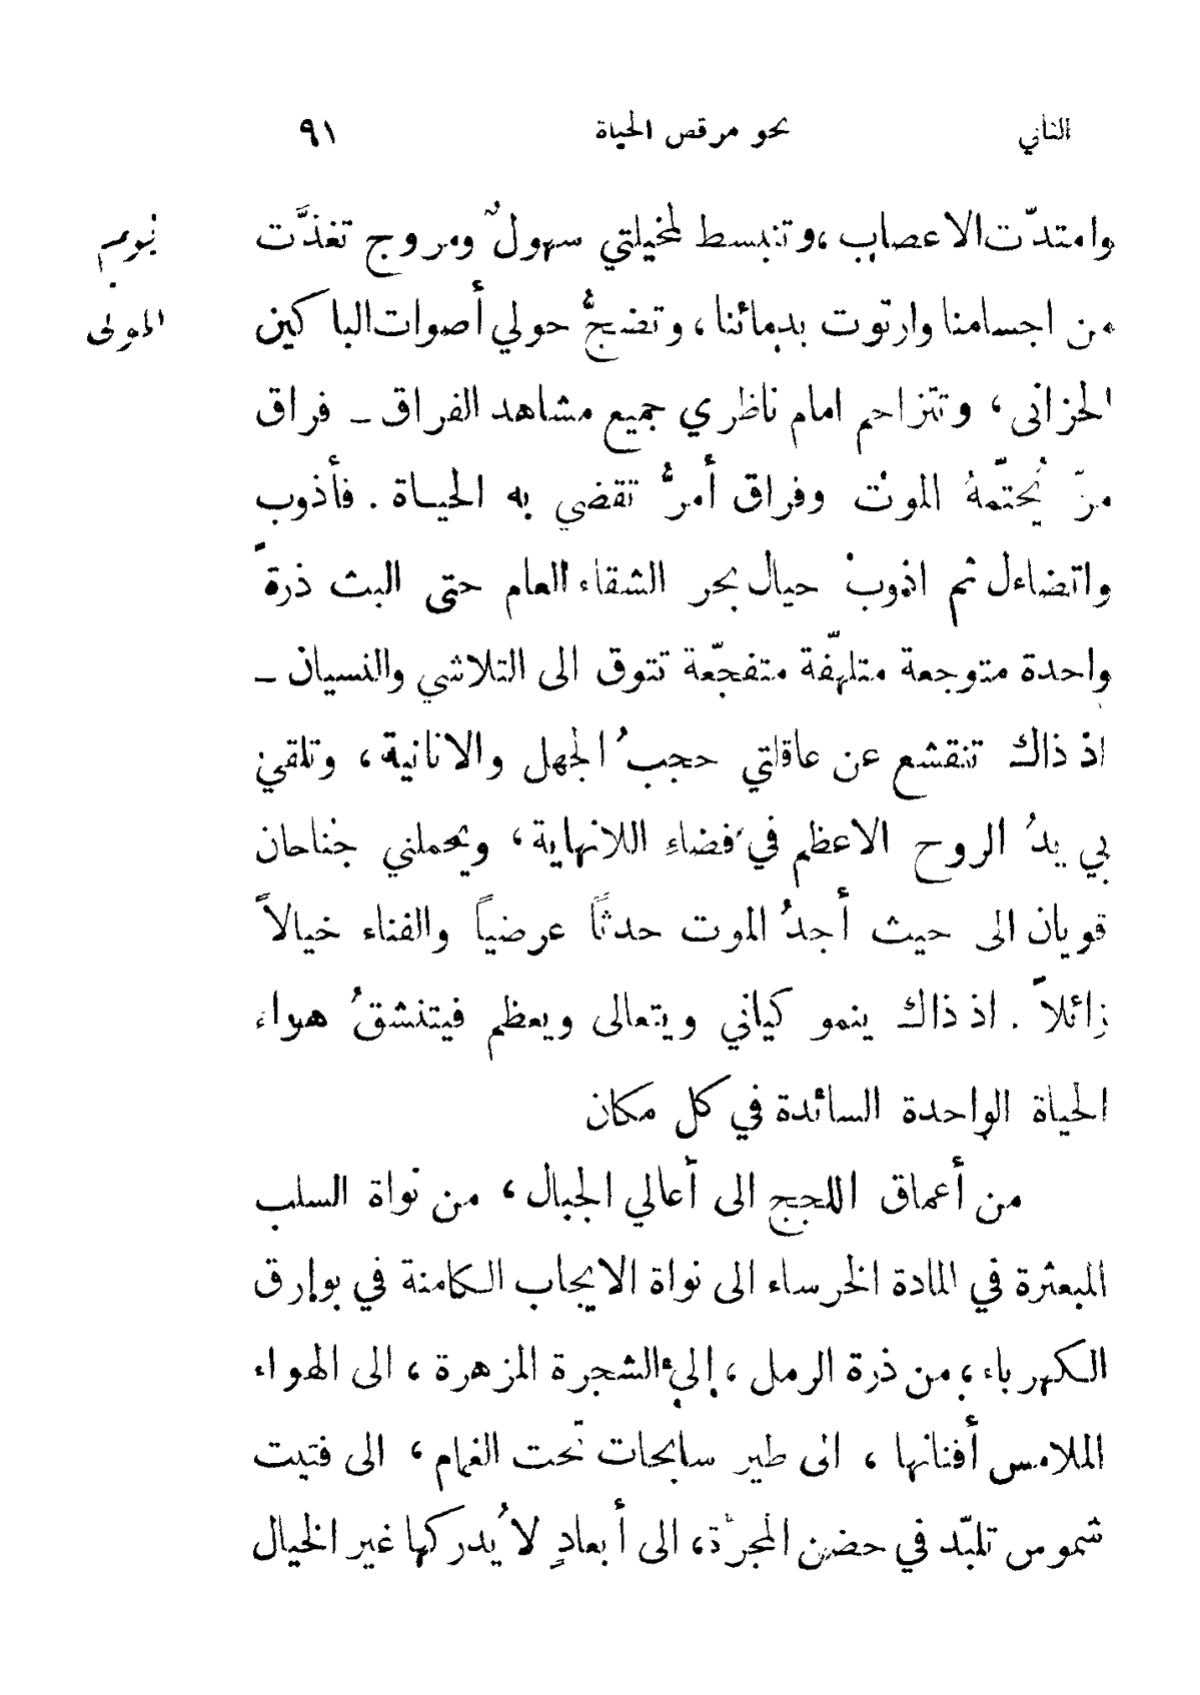 الثاني
نحو مرقص الحياة
٩١
وامتدّت الاعصاب، وتنبسط لمخيلتي سهولٌ ومروج تغذَّت
من اجسامنا وارتوت بدمائنا، وتضجُّ حولي أصوات الباكين
الحزانى، وتتزاحم امام ناظري جميع مشاهد الفراق ــ فراق
مرّ يُحتّمهُ الموت وفراق أمرُّ تقضي به الحياة. فأذوب
واتضاءل ثم اذوب حيال بحر الشقاء العام حتى البث ذرةً
واحدة متوجعة متلهّفة متفجّعة تتوق الى التلاشي والنسيان ــ
اذ ذاك تنقشع عن عاقلتي حجبُ الجهل والانانية، وتلقي
بي يدُ الروح الاعظم في فضاءِ اللانهاية، ويحملني جناحان
قويان الى حيث أجدُ الموت حدثاً عرضياً والفناء خيالاً
زائلاً. اذ ذاك ينمو كياني ويتعالى ويعظم فيتنشقُ هواء
الحياة الواحدة السائدة في كل مكان
من أعماق اللجج الى أعالي الجبال، من نواة السلب
المبعثرة في المادة الخرساء الى نواة الايجاب الكامنة في بوارق
الكهرباء، من ذرة الرمل، الى الشجرة المزهرة، الى الهواء
الملامس أفنانها، الى طير سابحات تحت الغمام، الى فتيت
شموس تلبّد في حضن المجرّة، الى أبعادٍ لا يُدركها غير الخيال